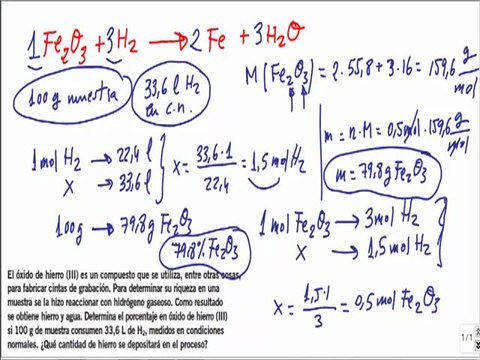 1 Fe₂O₃ + 3 H₂ → 2 Fe + 3 H₂O
100 g muestra
33,6 l H₂
en c.n.
M (Fe₂O₃) = 2·55,8 + 3·16 = 159,6 g/mol
1 mol H₂ → 22,4 l
x → 33,6 l
x = 33,6·1/22,4 = 1,5 mol H₂
m = n·M = 0,5 mol · 159,6 g/mol
m = 79,8 g Fe₂O₃
100 g → 79,8 g Fe₂O₃
79,8% Fe₂O₃
1 mol Fe₂O₃ → 3 mol H₂
x → 1,5 mol H₂
x = 1,5·1/3 = 0,5 mol Fe₂O₃
El óxido de hierro (III) es un compuesto que se utiliza, entre otras cosas,
para fabricar cintas de grabación. Para determinar su riqueza en una
muestra se la hizo reaccionar con hidrógeno gaseoso. Como resultado
se obtiene hierro y agua. Determina el porcentaje en óxido de hierro (III)
si 100 g de muestra consumen 33,6 L de H₂, medidos en condiciones
normales. ¿Qué cantidad de hierro se depositará en el proceso?
1/1